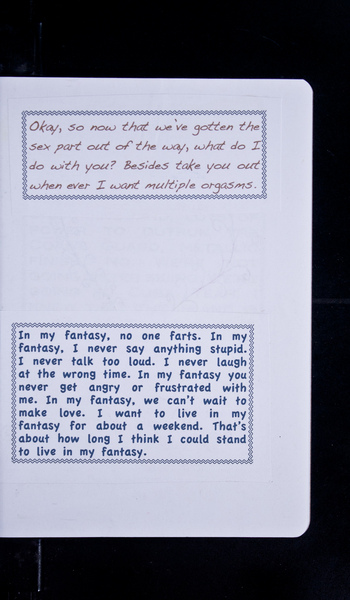 Okay, so now that we've gotten the
sex part out of the way, what do I
do with you? Besides take you out
when ever I want multiple orgasms.
In my fantasy, no one farts. In my
fantasy, I never say anything stupid.
I never talk too loud. I never laugh
at the wrong time. In my fantasy you
never get angry or frustrated with
me. In my fantasy, we can't wait to
make love. I want to live in my
fantasy for about a weekend. That's
about how long I think I could stand
to live in my fantasy.